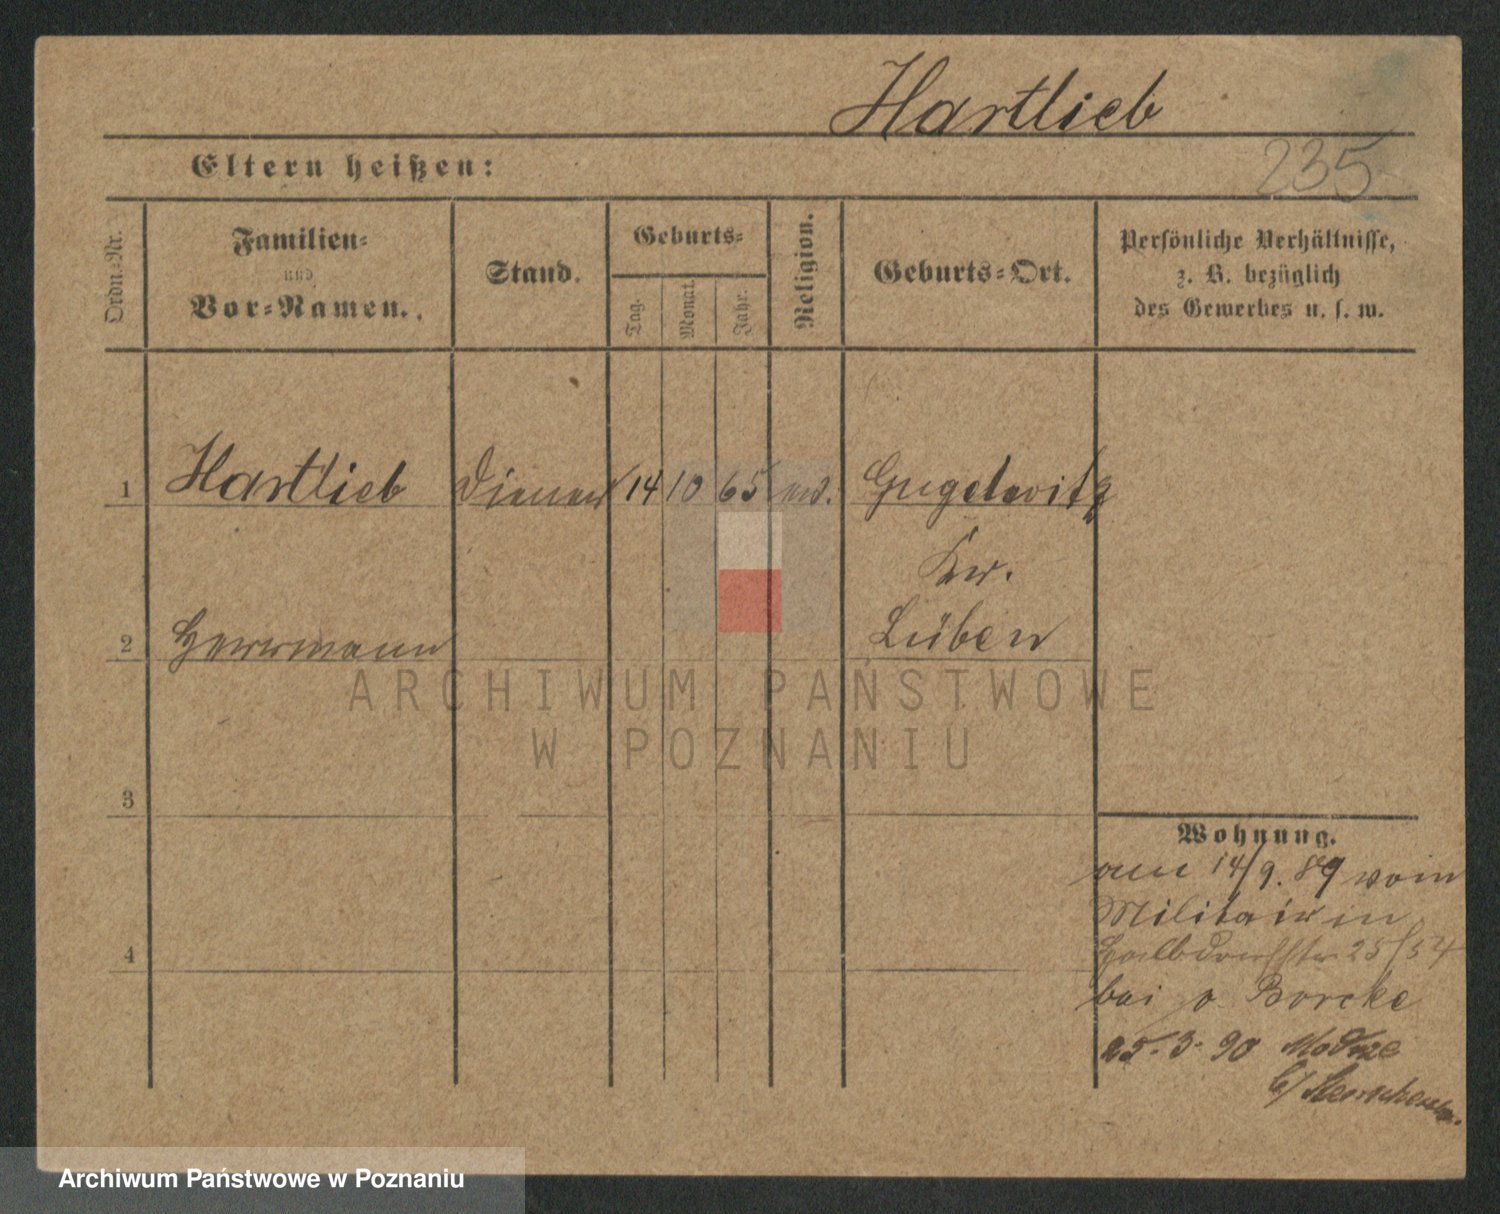 Hartlieb
Eltern heißen:
235
Ordn.-Nr.
Familien-
und
Vor-Namen.
Stand.
Geburts-
Tag.
Monat.
Jahr.
Religion.
Geburts-Ort.
Persönliche Verhältnisse,
z. B. bezüglich
des Gewerbes u. s. w.
1 Hartlieb Diener 14 10 65 ev. Gugelwitz
Kr.
2 Herrmann Lüben
ARCHIWUM PAŃSTWOWE
W POZNANIU
3
Wohnung.
am 14/9. 89 vom
Militair in
4
Halbdorfstr 25/54
bei v. Borcke
25. 3. 90
Archiwum Państwowe w Poznaniu